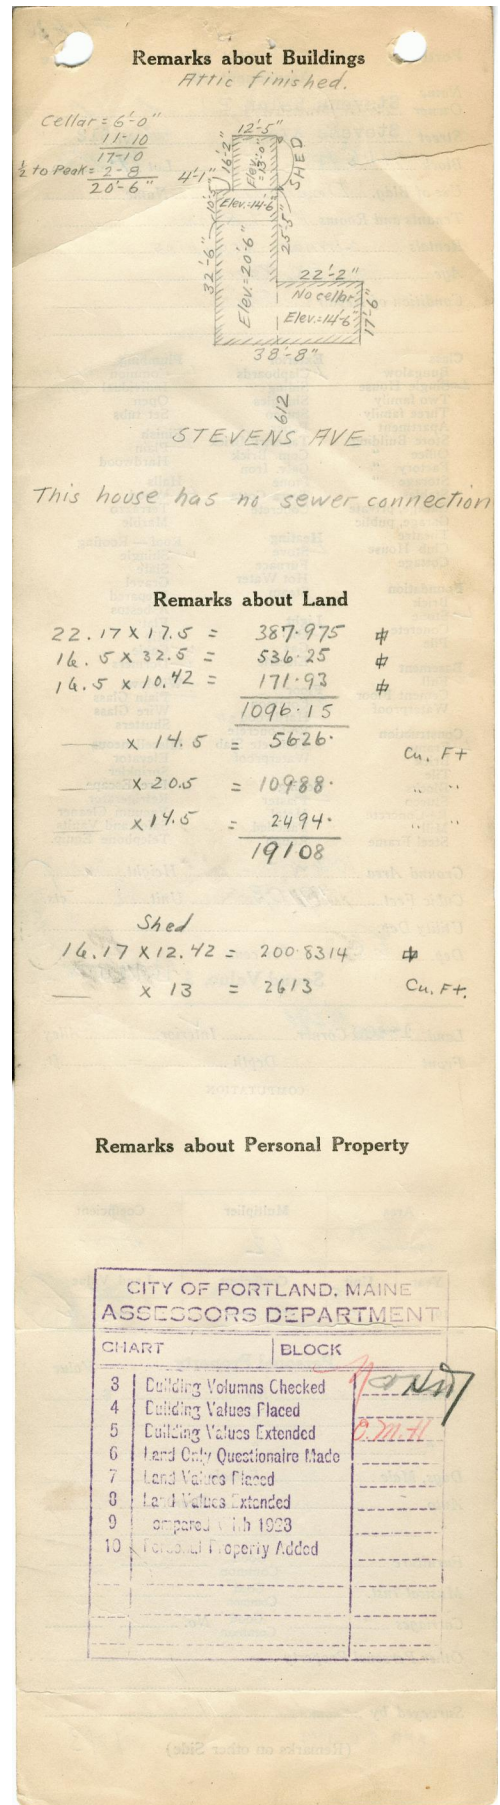 Remarks about Buildings
Attic finished.
Cellar = 6'-0"
11-10
17-10
½ to Peak = 2-8
20'-6"
12'-5"
16'-2"
Elev.=13'-0"
SHED
4'-1"
10'-5"
Elev.=14'-6"
32'-6"
Elev.=20'-6"
25'-5"
22'-2"
No cellar
Elev.=14'-6"
17'-6"
38'-8"
612
STEVENS AVE
This house has no sewer connection
Remarks about Land
22.17 X 17.5 = 387.975
16.5 X 32.5 = 536.25
16.5 X 10.42 = 171.93
1096.15
— X 14.5 = 5626. Cu. Ft
— X 20.5 = 10988. " "
— X 14.5 = 2494. " "
19108
Shed
16.17 X 12.42 = 200.8314
— X 13 = 2613 Cu. Ft.
Remarks about Personal Property
CITY OF PORTLAND, MAINE
ASSESSORS DEPARTMENT
CHART BLOCK
3 Building Volumns Checked
4 Building Values Placed
5 Building Values Extended
6 Land Only Questionaire Made
7 Land Values Placed
8 Land Values Extended
9 ompared With 1923
10 Personal Property Added